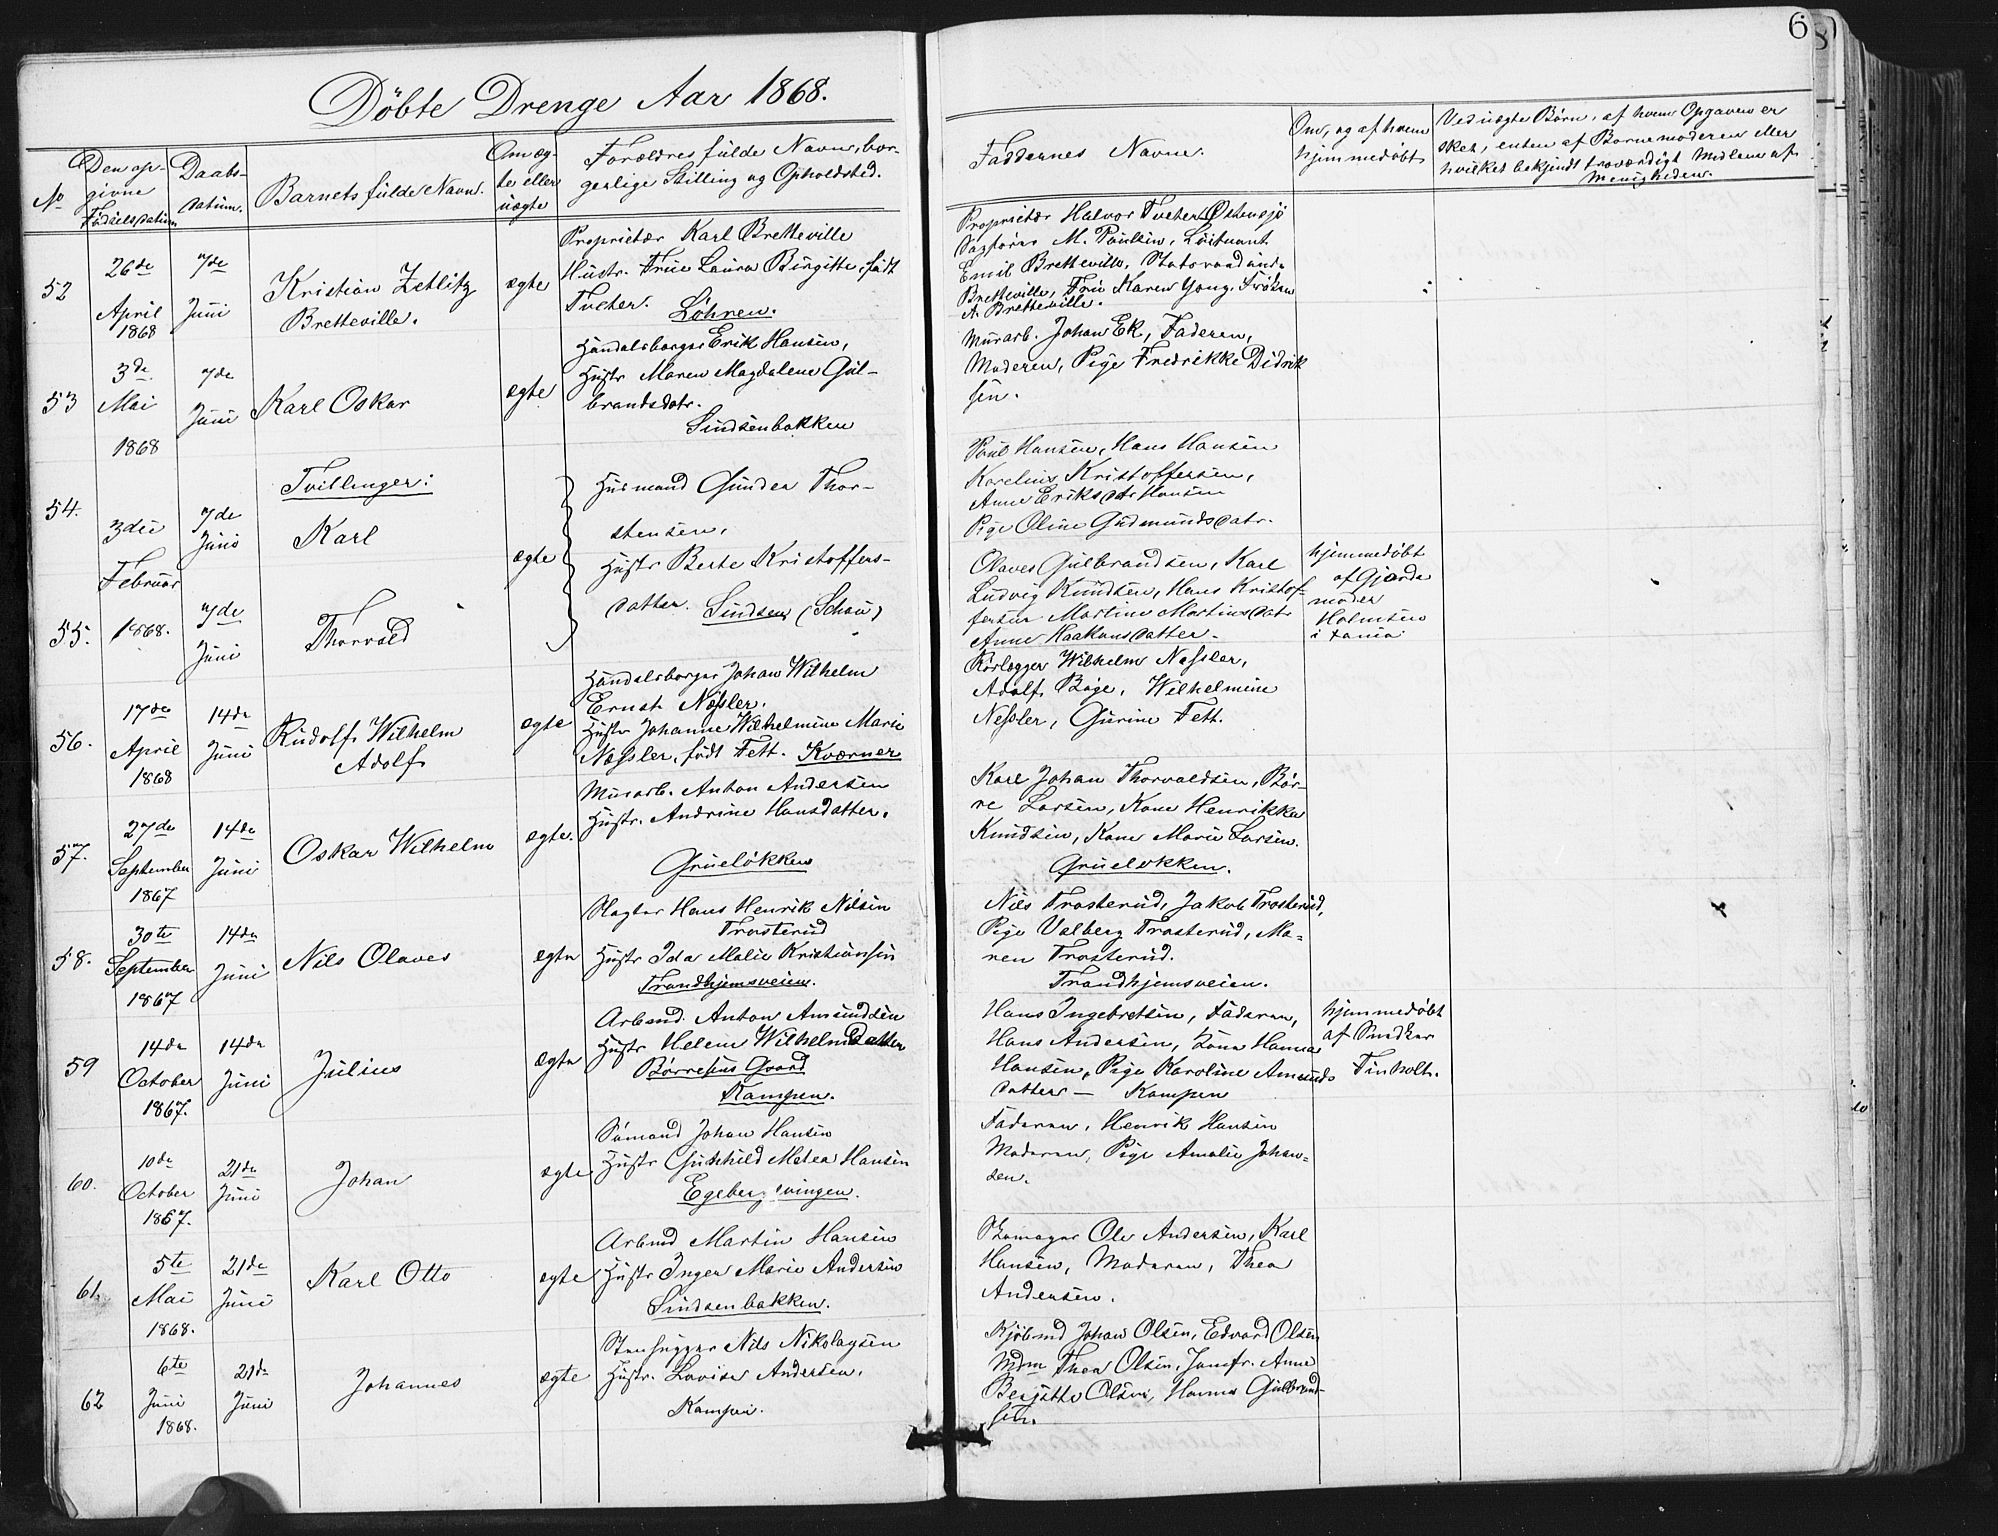 Döbte Drenge Aar 1868.
No
Den op-
givne
Födselsdatum
Daabs-
datum.
Barnets fulde Navn.
Om æg-
te eller
uægte
Forældres fulde Navne, bor-
gerlige Stilling og Opholdsted.
52
26de
April
1868
7de
Juni
Kristian Zetlitz
Bretteville.
ægte
Proprietær Karl Bretteville
Hustr. Frue Laura Birgitte, født
Tveter. Løhren.
53
3de
Mai
1868
7de
Juni
Karl Oskar
ægte
Handelsborger Erik Hansen,
Hustr Maren Magdalene Gul-
brandsdatr.
Sindsenbakken
54.
3die
Februar
1868.
7de
Juni
Tvillinger:
Karl
ægte
Husmand Gunder Thor-
stensen,
Hustr Berte Kristoffers-
datter. Sindsen (Schau)
55.
7de
Juni
Thorvald
56.
17de
April
1868
14de
Juni
Rudolf Wilhelm
Adolf
ægte
Handelsborger Johan Wilhelm
Ernst Nessler.
Hustr Johanne Wilhelmine Marie
Nessler, født Fett. Kværner
57.
27de
September
1867
14de
Juni
Oskar Wilhelm
ægte.
Murarb. Anton Andersen
Hustr. Andrine Hansdatter.
Grueløkken
58.
30te
September
1867
14de
Juni
Nils Olaves
ægte
Slagter Hans Henrik Nilsen
Trosterud
Hustr Ida Malie Kristiansen
Trondhjemsveien.
59
14de
October
1867.
14de
Juni
Julius
ægte
Arbmd. Anton Amundsen
Hustr Helene Wilhelmsdatter
Børresens Gaard
Kampen.
60.
10de
October
1867.
21de
Juni
Johan
ægte
Sömand Johan Hansen
Hustr Gunhild Matea Hansen
Egebergsvingen.
61.
5te
Mai
1868.
21de
Juni
Karl Otto
ægte
Arbmd Martin Hansen
Hustr Inger Marie Andersen
Sindsenbakken.
62
6te
Juni
1868.
21de
Juni
Johannes
ægte
Stenhugger Nils Nikolaysen
Hustr. Lovise Andersen,
Kampen.
6
Faddernes Navne.
Om, og af hvem
hjemmedøbt
Ved uægte Børn, af hvem Opgaven er
sket, enten af Barnemoderen eller
hvilket bekjendt troværdigt Medlem af
Menigheden.
Proprietær Halvor Tveter Østensjø
M. Paulsen, Løitnant
Emil Bretteville, Statsraadinde
Bretteville, Fru Maren Yong, Frøken
A. Bretteville.
Murarb. Johan Ek, Faderen,
Moderen, Pige Fredrikke Didrik
sen.
Paul Hansen, Hans Hansen
Karelius Kristoffersen,
Anne Eriksdatr Hansen
Pige Oline Gudmundsdatr.
Olaves Gulbrandsen, Karl
Ludvig Knudsen, Hans Kristof-
fersen Martine Martinsdatr
Anne Haakonsdatter.
hjemmedøbt
af Gjorde
moder
Holmsen
Rörlægger Wilhelm Nessler,
Adolf Bøge, Wilhelmine
Nessler, Gurine Fett.
Karl Johan Thorvaldsen, Bör-
re Larsen, Kone Henrikke
Knudsen, Kone Marie Larsen.
Grueløkken.
Nils Trosterud, Jakob Trosterud,
Pige Valberg Trosterud, Ma-
ren Trosterud.
Trondhjemsveien.
Hans Ingebretsen, Faderen,
Hans Andersen, Kone Hanna
Hansen, Pige Karoline Amunds
datter — Kampen
hjemmedøbt
af Snedker
Finholt.
Faderen, Henrik Hansen
Moderen, Pige Amalie Johan-
sen.
Skomager Ole Andersen, Karl
Hansen, Moderen, Thea
Andersen.
Kjøbmd Johan Olsen, Edvard Olsen
Mdm Thea Olsen, Jomfr. Anne
Bergitte Olsen, Hanna Gulbrand-
sen.